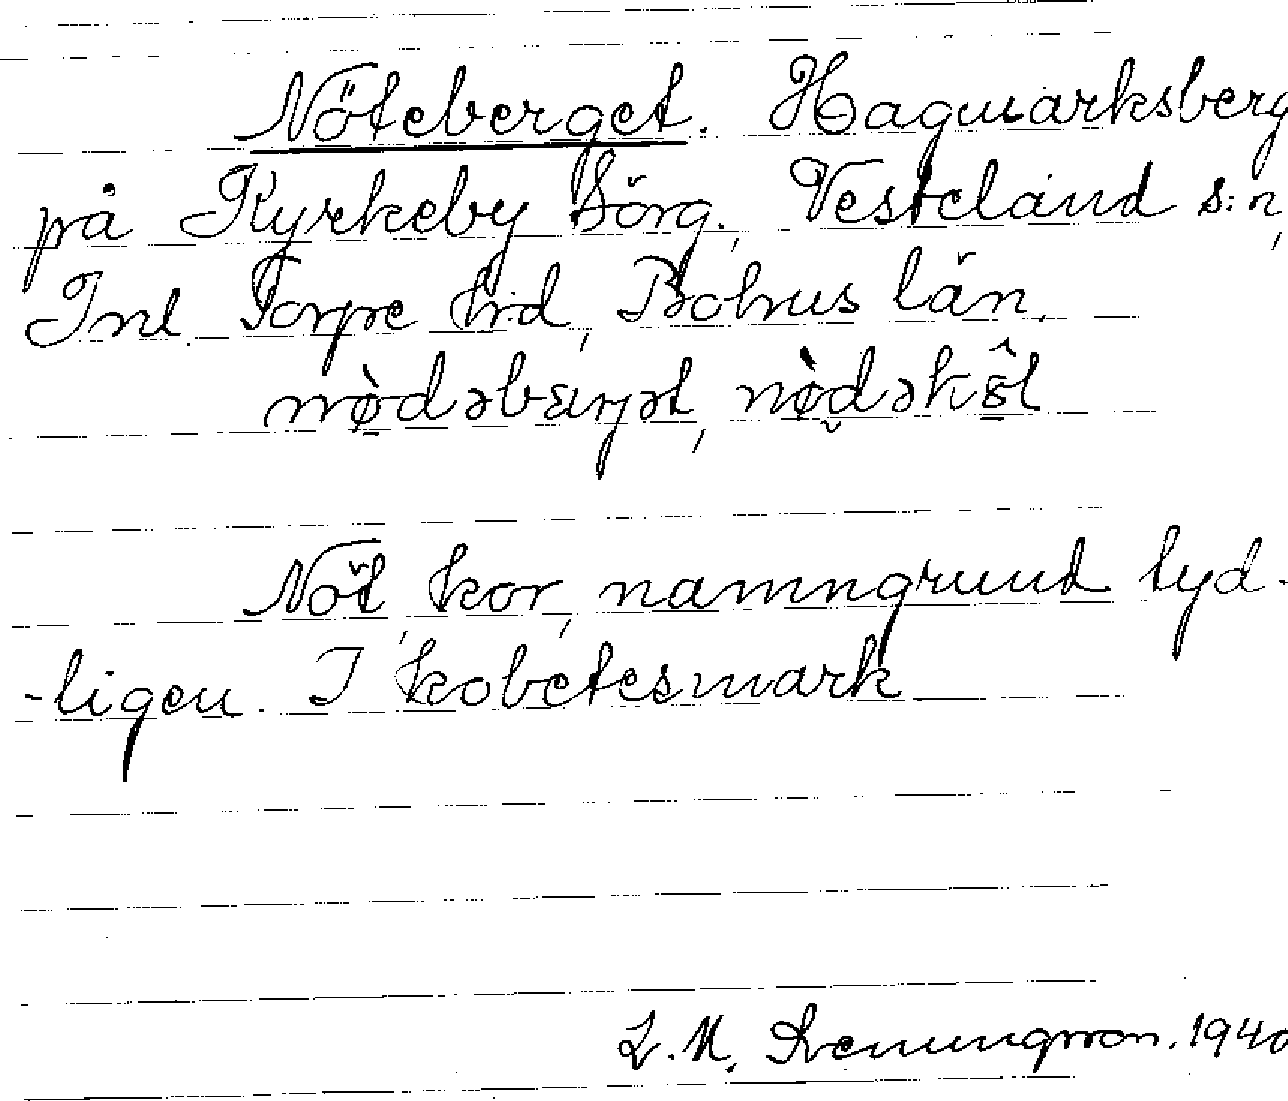 Nöteberget. Hagmarksberg
på Kyrkeby börg., Vesteland s:n,
Inl. Torpe hd, Bohus län.
nø̀dəbærjət, nø̀dəhôl
Nöt, kor, namngrund tyd-
-ligen. I kobetesmark
L. M. 1940